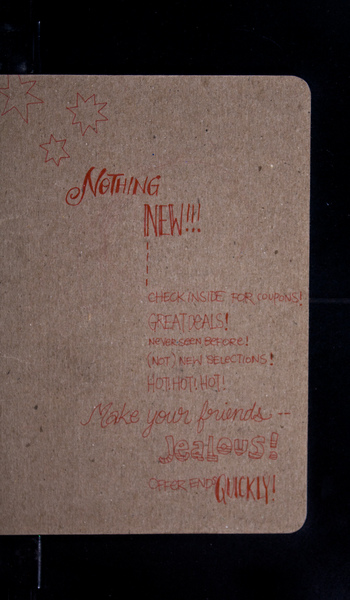 NOTHING
NEW!!!
CHECK INSIDE FOR COUPONS!
GREAT DEALS!
NEVER SEEN BEFORE!
(NOT) NEW SELECTIONS!
HOT! HOT! HOT!
Make your friends --
Jealous!
OFFER ENDS QUICKLY!